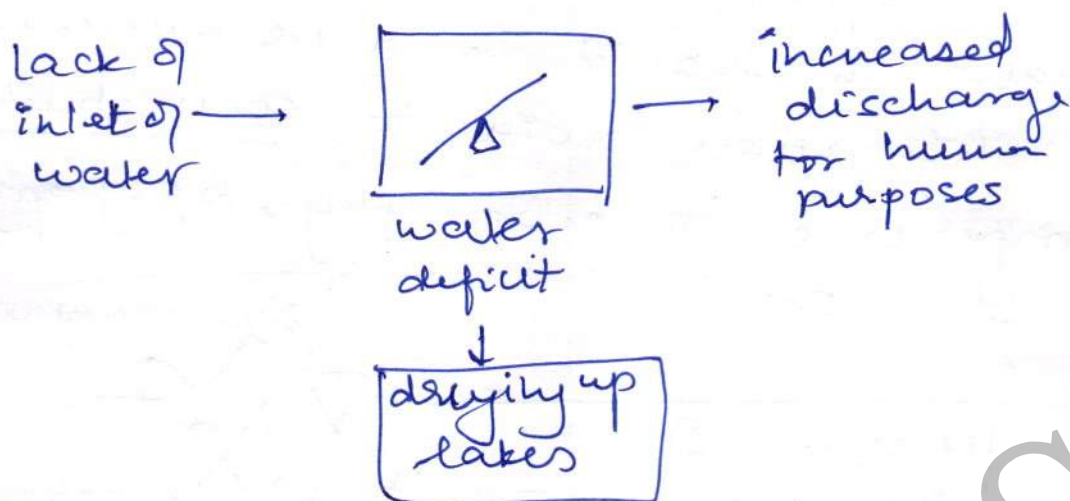 lack of
inlet of
water
increased
discharge
for human
purposes
water
deficit
drying up
lakes